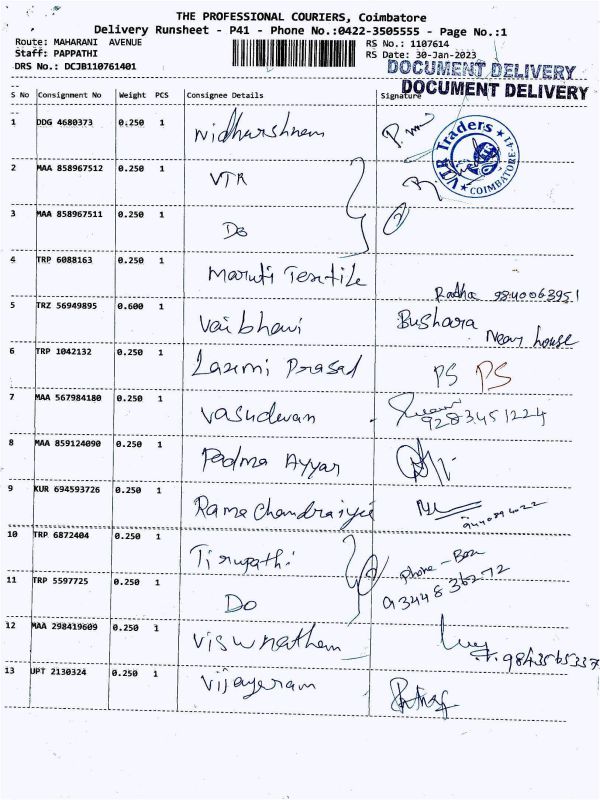 THE PROFESSIONAL COURIERS, Coimbatore
Delivery Runsheet - P41 - Phone No.:0422-3505555 - Page No.:1
Route: MAHARANI AVENUE RS No.: 1107614
Staff: PAPPATHI RS Date: 30-Jan-2023
DRS No.: DCJB110761401
DOCUMENT DELIVERY
DOCUMENT DELIVERY
S No Consignment No Weight PCS Consignee Details Signature
1 DDG 4680373 0.250 1 Nidharshnam
VTR Traders
COIMBATORE-41
2 MAA 858967512 0.250 1 VTR
3 MAA 858967511 0.250 1 Do
4 TRP 6088163 0.250 1 Maruti Textile
Radha 9840063951
5 TRZ 56949895 0.600 1 Vaibhavi Bushara
Near house
6 TRP 1042132 0.250 1 Laxmi Prasad PS PS
7 MAA 567984180 0.250 1 Vasudevan 9283451224
8 MAA 859124090 0.250 1 Padma Ayyar
9 KUR 694593726 0.250 1
10 TRP 6872404 0.250 1 Tirupathi Phone - Box
11 TRP 5597725 0.250 1 Do 93448 36272
12 MAA 298419609 0.250 1 Viswnatham
13 UPT 2130324 0.250 1 Vijayaram